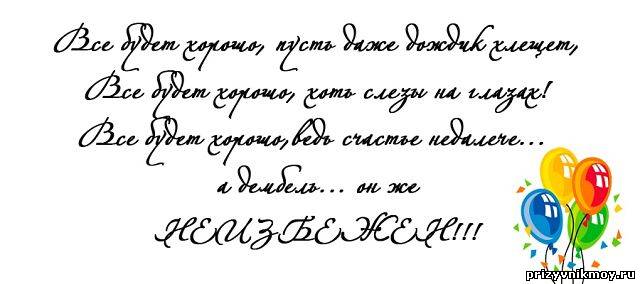 Все будет хорошо, пусть даже дождик хлещет,
Все будет хорошо, хоть слезы на глазах!
Все будет хорошо,ведь счастье недалече...
а дембель... он же
НЕИЗБЕЖЕН!!!
prizyvnikmoy.ru